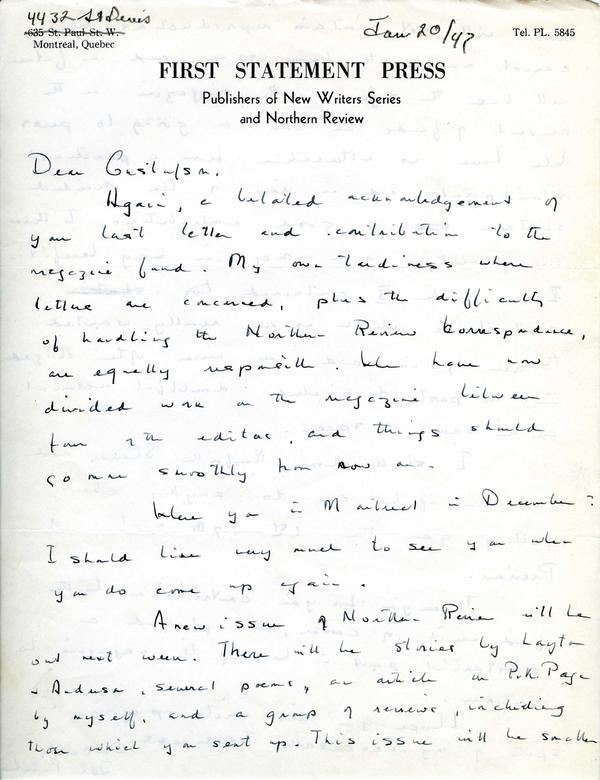 4432 St Denis
635 St. Paul St. W.
Montreal, Quebec
Jan 20/47
Tel. PL. 5845
FIRST STATEMENT PRESS
Publishers of New Writers Series
and Northern Review
Dear Gustafson.
Again, a belated acknowledgement of
your last letter and contribution to the
magazine fund. My own tardiness where
letters are concerned, plus the difficulty
of handling the Northern Review correspondence,
are equally responsible. We have now
divided work on the magazine between
four of the editors, and things should
go more smoothly from now on.
Were you in Montreal in December?
I should like very much to see you when
you do come up again.
A new issue of Northern Review will be
out next week. There will be stories by Layton
several poems, an article on P.K. Page
by myself, and a group of reviews, including
those which you sent up. This issue will be smaller